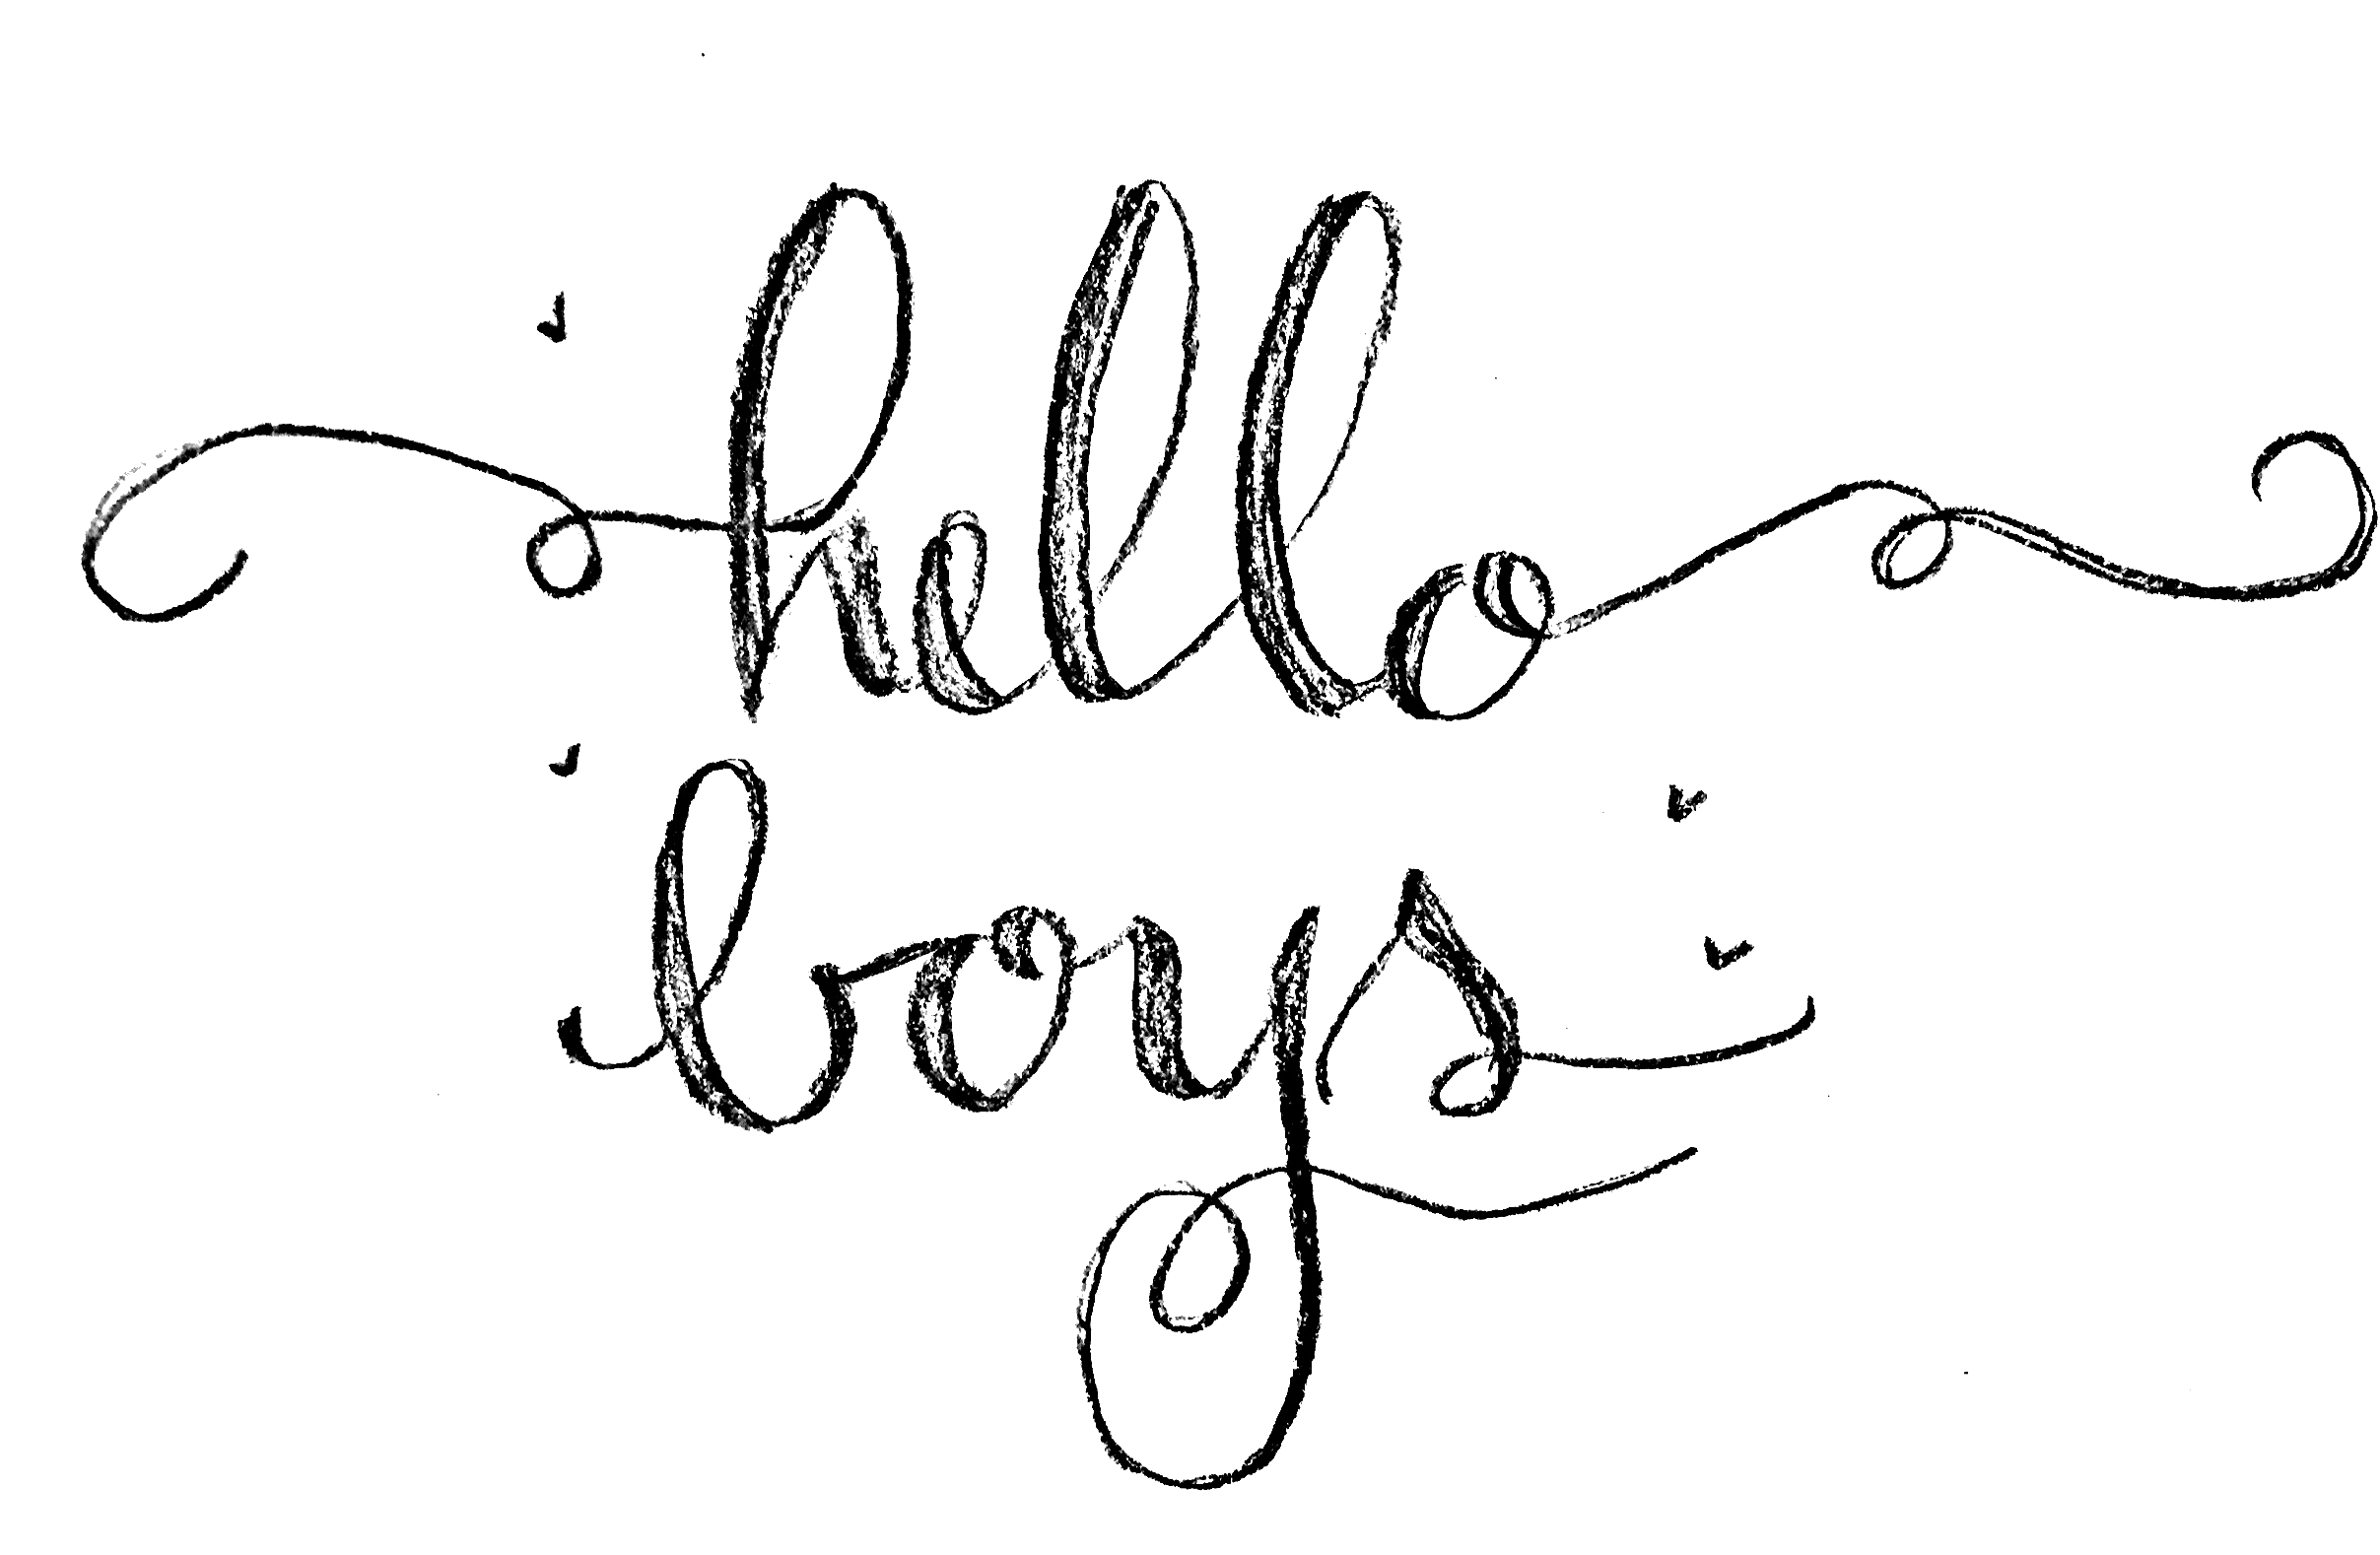 hello
boys